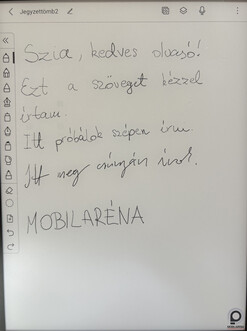 Jegyzettömb2
Szia, kedves olvasó!
Ezt a szöveget kézzel
írtam.
Itt próbálok szépen írni.
Itt meg csúnyán írok.
MOBILARÉNA